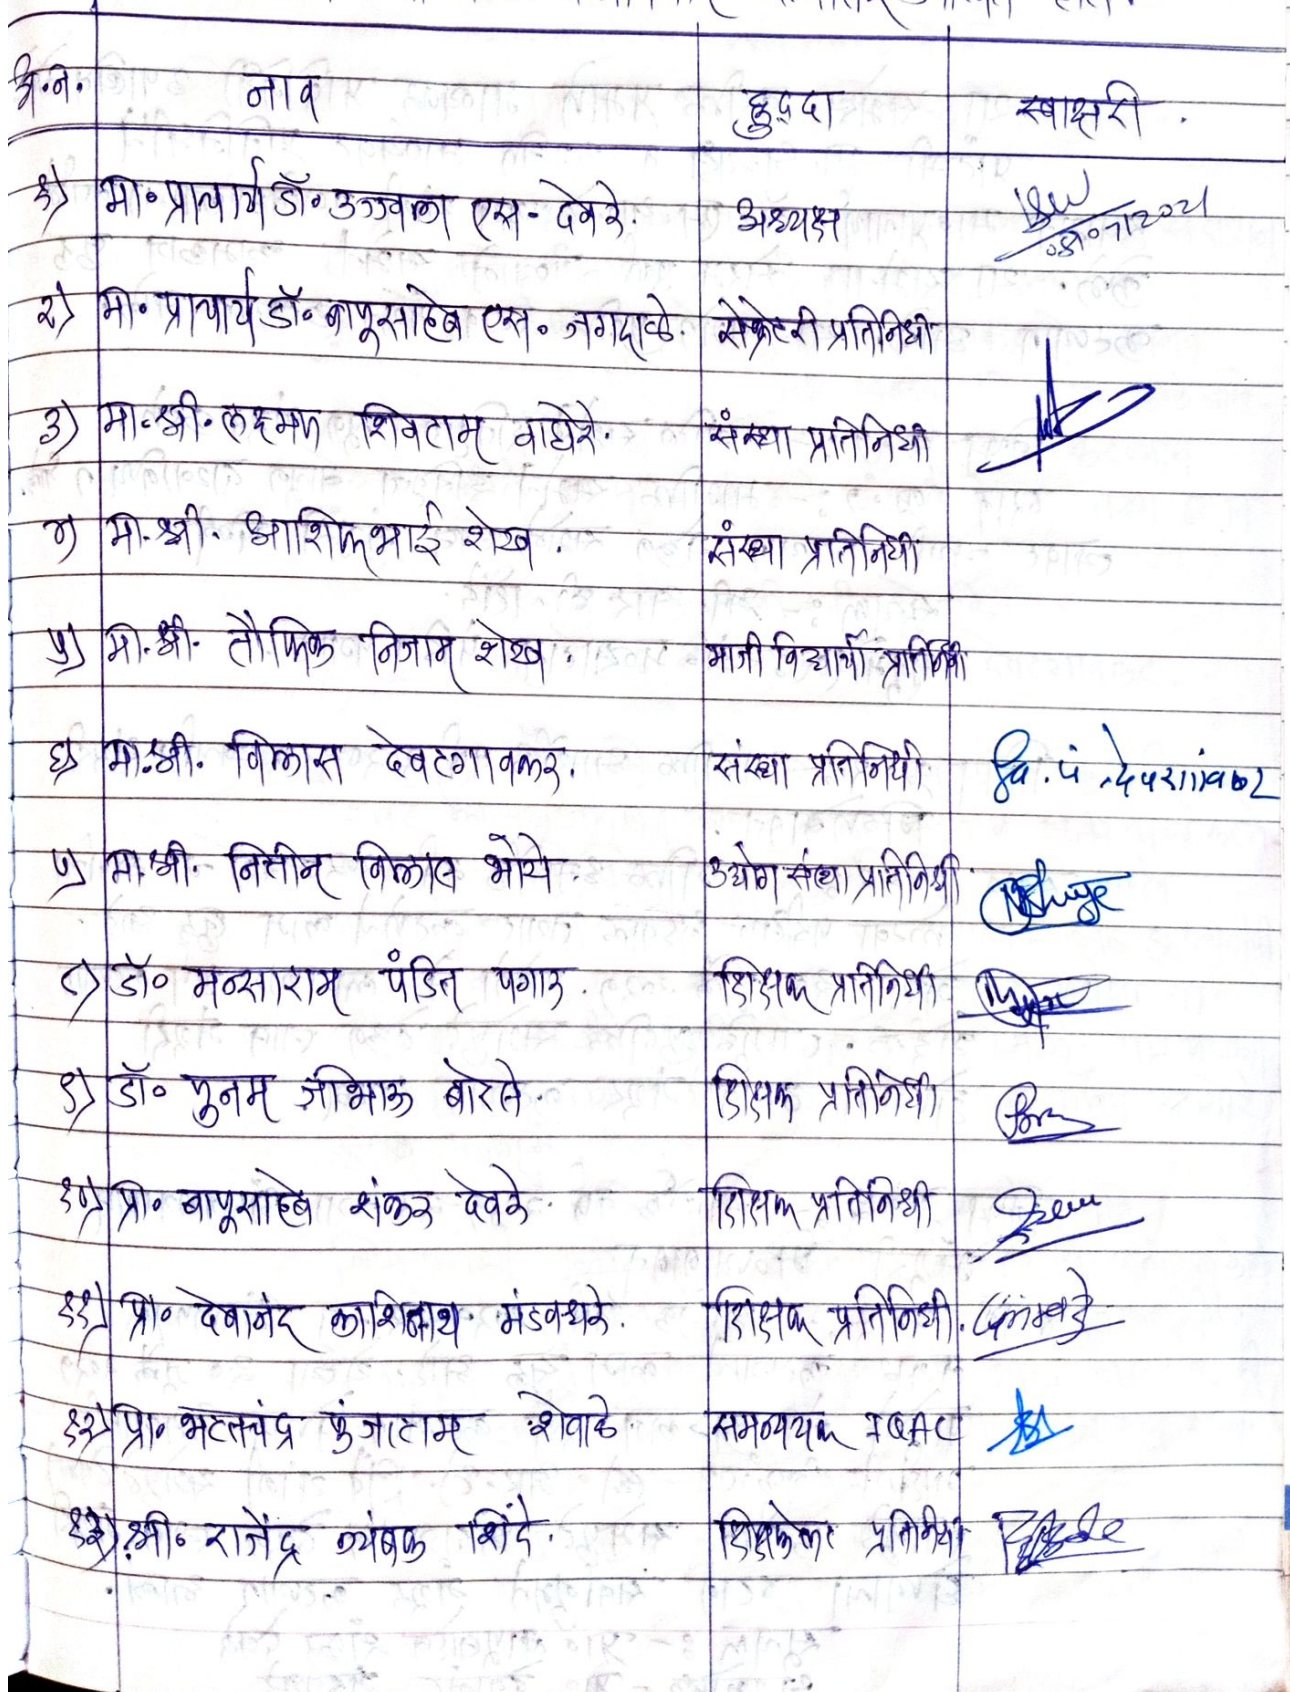 अ.नं. नाव हुद्दा स्वाक्षरी.
१) मा. प्राचार्य डॉ. उज्ज्वला एस. देवरे. अध्यक्ष
२) मा. प्राचार्य डॉ. बापूसाहेब एस. जगदाळे. सेक्रेटरी प्रतिनिधी
३) मा. श्री. लक्ष्मण शिवराम वाघेरे. संस्था प्रतिनिधी
४) मा. श्री. आशिकभाई शेख. संस्था प्रतिनिधी
५) मा. श्री. तौफिक निजाम शेख. माजी विद्यार्थी प्रतिनिधी
६) मा. श्री. विलास देवरगावकर. संस्था प्रतिनिधी
७) मा. श्री. नितीन विलास भोये. उद्योग संस्था प्रतिनिधी
८) डॉ. मन्साराम पंडित पगार. शिक्षक प्रतिनिधी
९) डॉ. पुनम जिभाऊ बोरसे. शिक्षक प्रतिनिधी
१०) प्रा. बापूसाहेब शंकर देवरे. शिक्षक प्रतिनिधी
११) प्रा. देवानंद काशिनाथ मंडवधरे. शिक्षक प्रतिनिधी.
१२) प्रा. भरतचंद्र कुंजाराम शेवाळे समन्वयक IQAC
१३) श्री. राजेंद्र त्र्यंबक शिंदे. शिक्षकेतर प्रतिनिधी